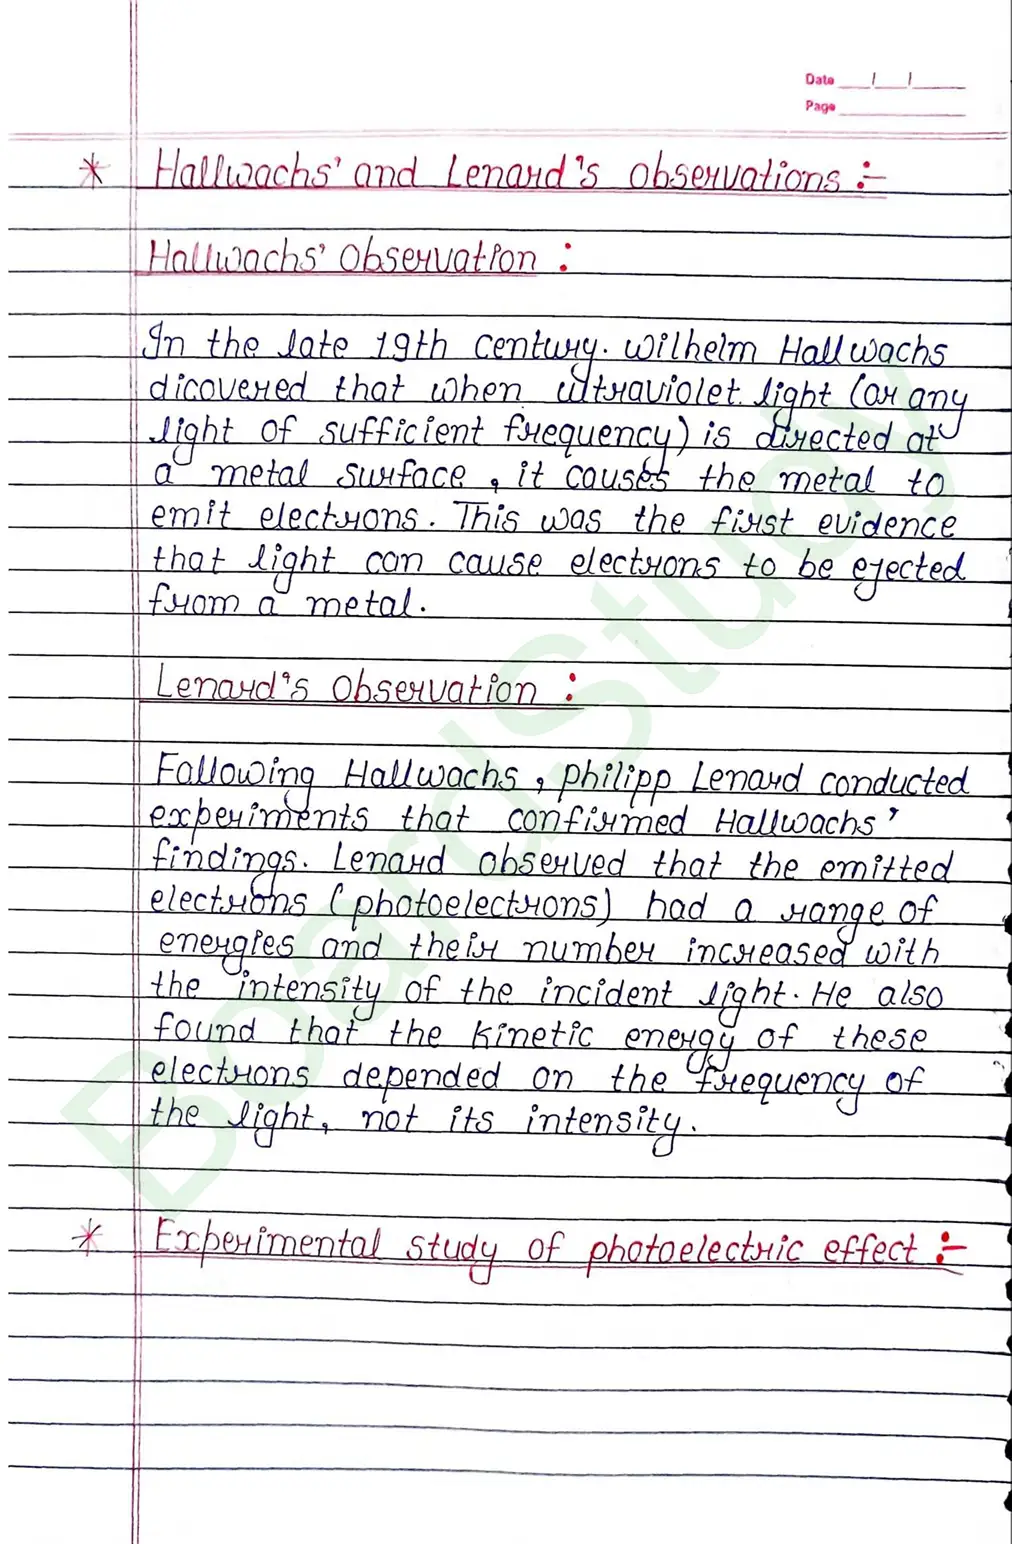 Date / /
Page
* Hallwachs' and Lenard's observations :-
Hallwachs' Observation :
In the late 19th century. Wilhelm Hallwachs
dicovered that when ultraviolet light (or any
light of sufficient frequency) is directed at
a metal surface, it causes the metal to
emit electrons. This was the first evidence
that light can cause electrons to be ejected
from a metal.
Lenard's Observation :
Following Hallwachs, Philipp Lenard conducted
experiments that confirmed Hallwachs'
findings. Lenard observed that the emitted
electrons (photoelectrons) had a range of
energies and their number increased with
the intensity of the incident light. He also
found that the kinetic energy of these
electrons depended on the frequency of
the light, not its intensity.
* Experimental study of photoelectric effect :-
BoardStudy